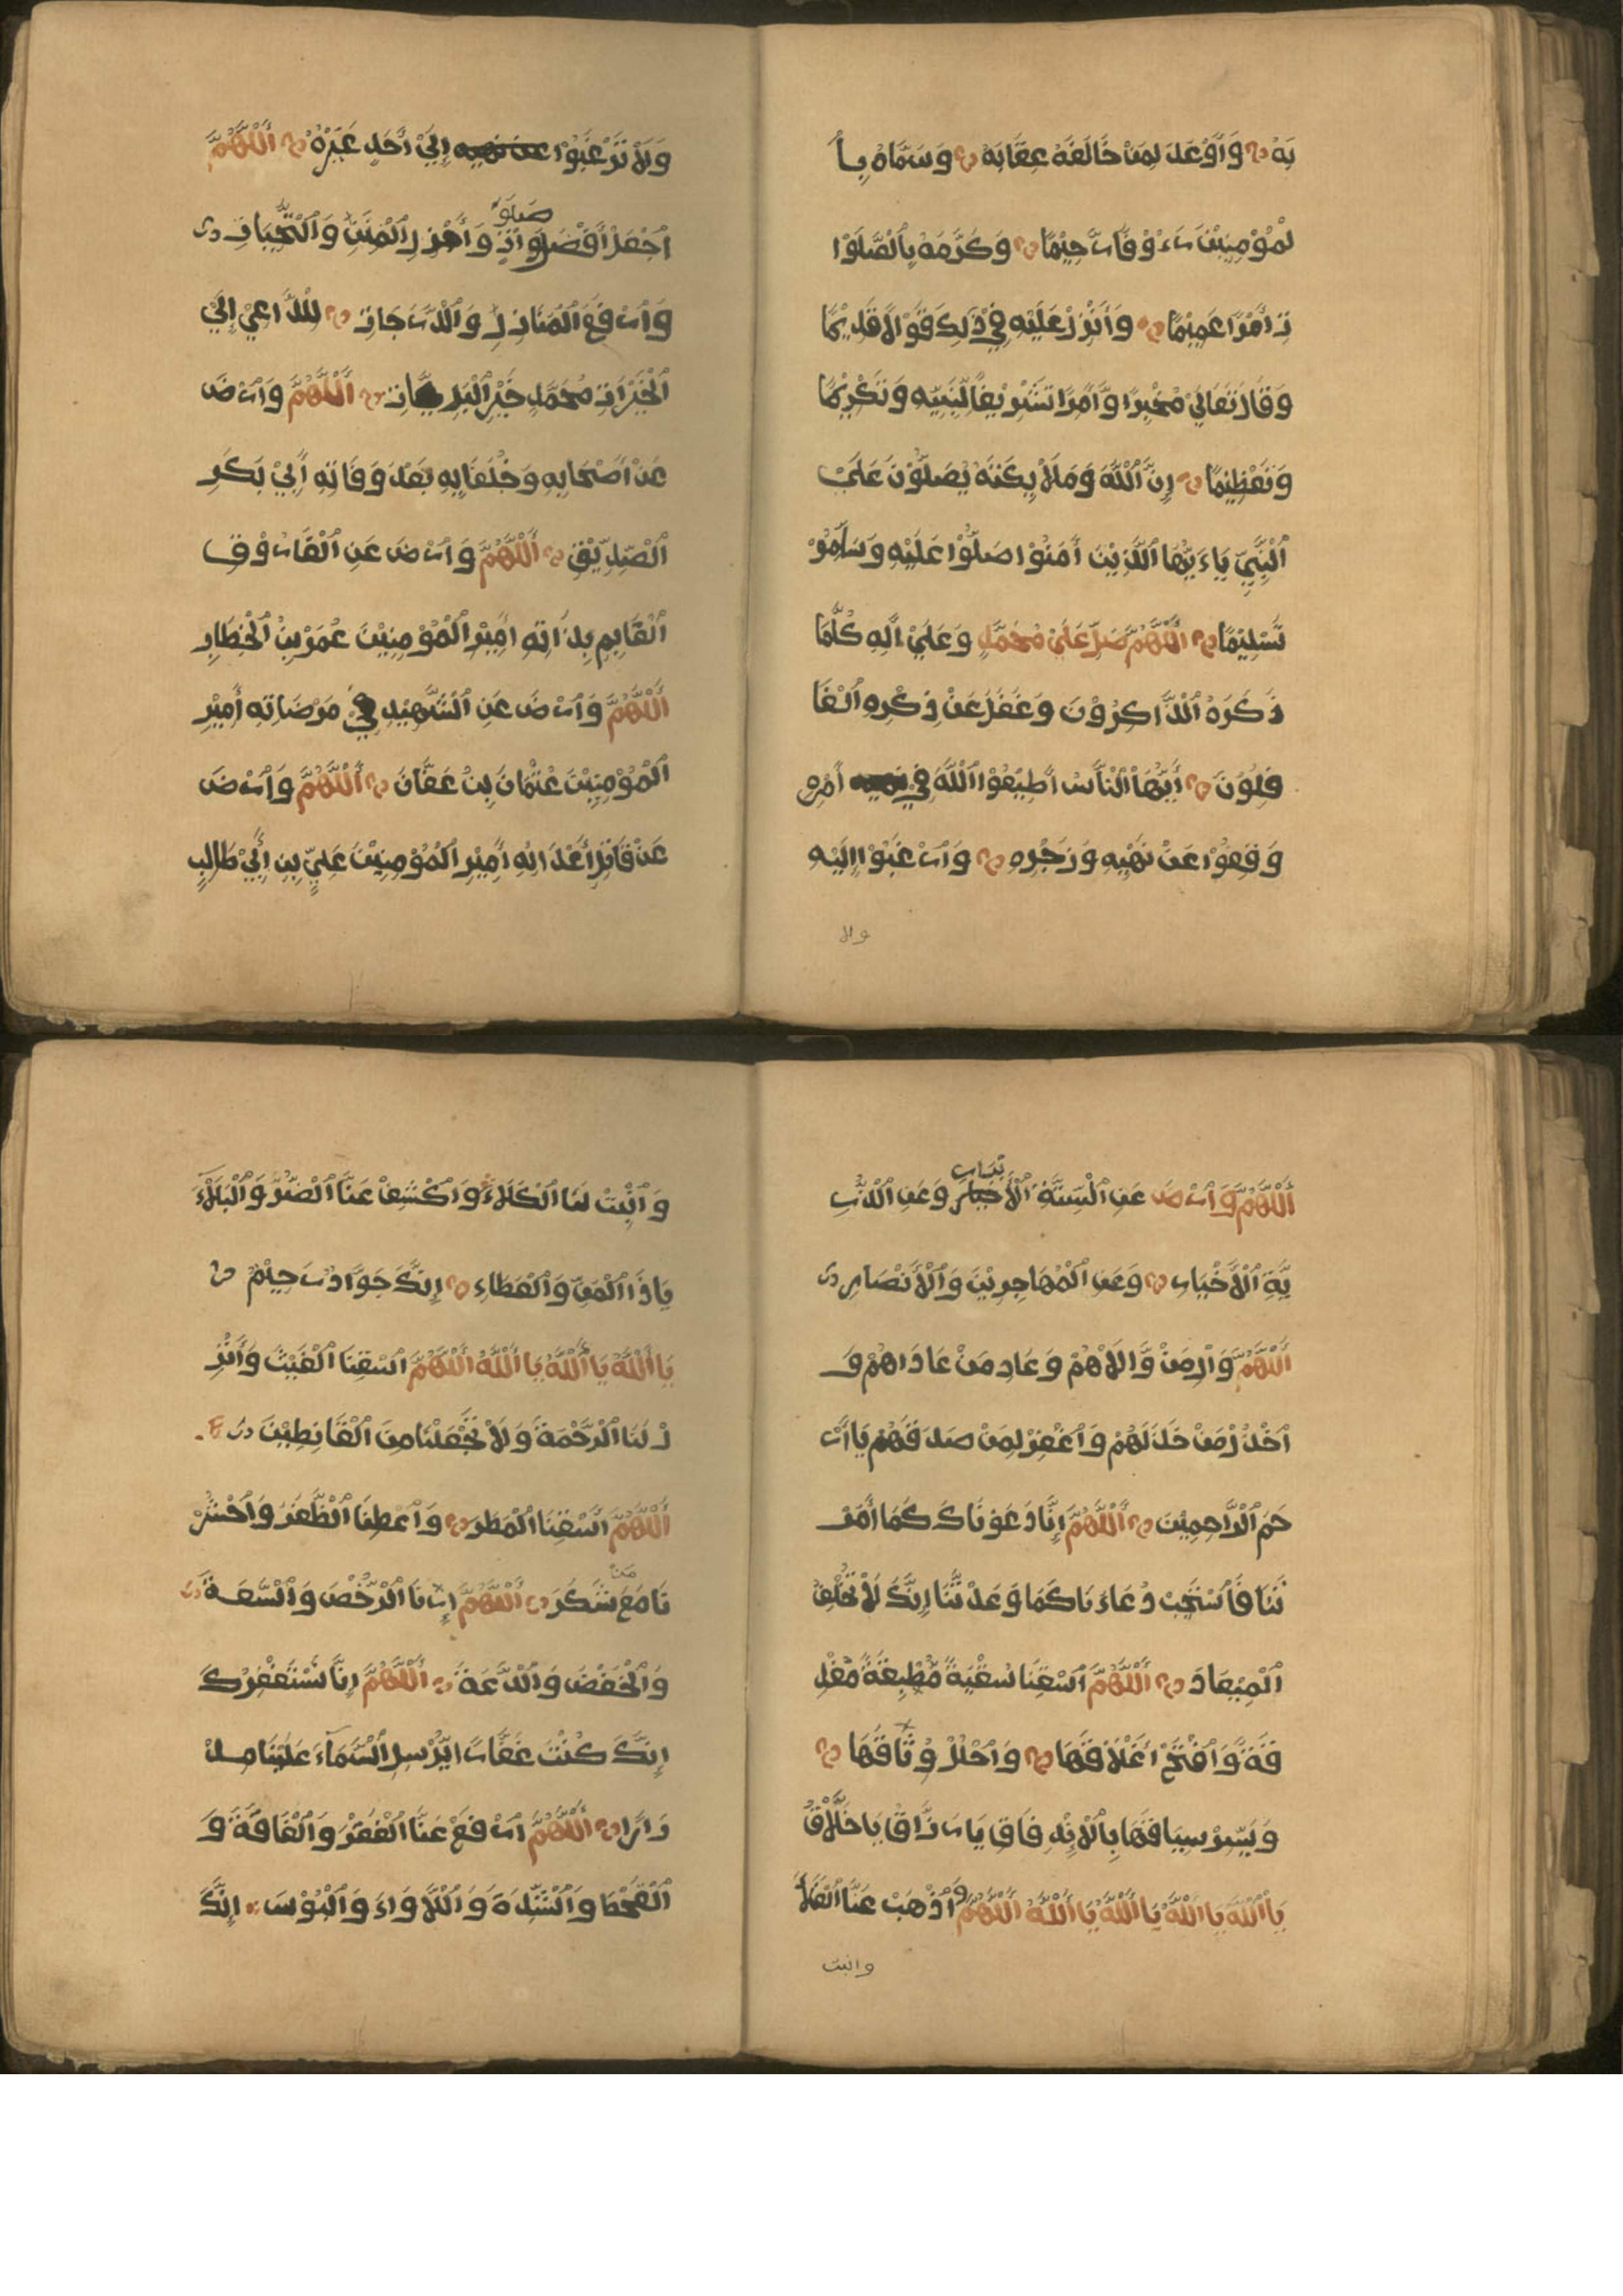 بَهُ وَأَوْعَدَ لِمَنْ خَالَفَهُ عِقَابَهُ وَسَمَّاهُ بِأ
لْمُؤْمِنِيْنَ رَءُوْفًا رَّحِيْمًا وَكَرَّمَهُ بِالْصَّلَوْا
تِ أَمْرًا عَمِيْمًا وَأَنْزَلَ عَلَيْهِ فِيْ ذَلِكَ قَوْلًا قَدِيْمًا
وَقَالَ تَعَالَيْ مُخْبِرًا وَّأَمِرًا تَشْرِيْفًا لِّنَبِيِّهِ وَتَكْرِيْمًا
وَتَعْظِيْمًا إِنَّ اَللَّهَ وَمَلَائِكَتَهُ يُصَلُّوْنَ عَلَيْ
اَلْنَّبِيِّ يَاءَيُّهَا اَلَّذِيْنَ أَمَنُوْا صَلُّوْا عَلَيْهِ وَسَلِّمُوْ
تَسْلِيْمًا اَللَّهُمَّ صَلِّ عَلَيْ مُحَمَّدٍ وَعَلَيْ اَلِهِ كُلَّمَا
ذَكَرَهُ اَلذَّاكِرُوْنَ وَغَفَلَ عَنْ ذِكْرِهِ اَلْغَا
فِلُوْنَ أَيُّهَا اَلْنَّاسُ أَطِيْعُوْا اَللَّهَ فِيْ أَمْرِهِ
وَقِعُوْا عَنْ نَهْيِهِ وَزَجْرِهِ وَارْغَبُوْا إِلَيْهِ
ولا
وَلَا تَرْغَبُوْا إِلَيْ أَحَدٍ غَيْرَهُ أَللَّهُمَّ
صلو
اَجْعَلْ أَفْضَلَ وَاتِ وَأَجْزِلِ اَلْمِنَنِ وَالْتَّحِيَّاتِ
وَارْفَعِ اَلْمَنَازِلِ وَالْدَّرَجَاتِ لِلْدَّاعِيْ إِلَيْ
اَلْخَيْرَاتِ مُحَمَّدٍ خَيْرِ اَلْبَرِيَّاتِ أَللَّهُمَّ وَارْضَ
عَنْ أَصْحَابِهِ وَخُلَفَايِهِ بَعْدَ وَفَاتِهِ أَبِيْ بَكْرِ
اَلْصِّدِّيْقِ أَللَّهُمَّ وَارْضَ عَنِ اَلْفَارُوْقِ
اَلْقَايِمِ بِذَاتِهِ أَمِيْرِ اَلْمُؤْمِنِيْنَ عُمَرَ بْنِ اَلْخِطَابِ
أَللَّهُمَّ وَارْضَ عَنِ اَلشَّهِيْدِ فِيْ مَرْضَاتِهِ أَمِيْرِ
اَلْمُؤْمِنِيْنَ عُثْمَانَ بِنْ عَفَّانَ أَللَّهُمَّ وَارْضَ
عَنْ قَاتِلِ أَعْدَائِهِ أَمِيْرِ اَلْمُؤْمِنِيْنَ عَلِيِّ بِنِ أَبِيْ طَالِبٍ
أَللَّهُمَّ وَارْضَ عَنِ اَلْسِّتَّةِ اَلْأَخْيَارِ وَعَنِ اَلْذُّرِّ
يَّةِ اَلْأَخْيَارِ وَعَنِ اَلْمُهَاجِرِيْنَ وَالْأَنْصَارِ
أَللَّهُمَّ وَالِ مَنْ وَّالَاهُمْ وَعَادِ مَنْ عَادَاهُمْ وَ
اَخْذُلْ مَنْ خَذَلَهُمْ وَاغْفِرْ لِمَنْ صَدَقَهُمْ يَا أَرْ
حَمَ اَلْرَّاحِمِيْنَ أَللَّهُمَّ إِنَّا دَعَوْنَاكَ كَمَا أَمَرْ
تَنَا فَاسْتَجِبْ دُعَاءَنَا كَمَا وَعَدْتَّنَا إِنَّكَ لَاْ تُخْلِفُ
اَلْمِيْعَادَ أَللَّهُمَّ اَسْقِنَا سُقْيَةً مُّطْبِقَةً مُّغْدِ
قَةً وَّافْتَحْ أَغْلَاقَهَا وَاحْلُلْ وُثَاقَهَا
وَيَسِّرْ سِيَاقَهَا بِالْأَنْهِ فَاقِ يَا رَزَّاقُ يَا خَلَّاقُ
يَا أَللَّهُ يَا أَللَّهُ يَا أَللَّهُ يَا أَللَّهُ أَللَّهُمَّ وَاذْهَبْ عَنَّا اَلْغَلَأَ
وانبت
وَانْبِتْ لَنَا اَلْكَلَاءَ وَاكْشِفْ عَنَّا اَلْضُّرَّ وَالْبَلَاءَ
يَاذَا اَلْمَنِّ وَالْعَطَاءِ إِنَّكَ جَوَّادٌ رَحِيْمٌ
يَا أَللَّهُ يَا أَللَّهُ يَا أَللَّهُ أَللَّهُمَّ اَسْقِنَا اَلْغَيْثَ وَأَنْزِ
لْ لَنَا اَلْرَّحْمَةَ وَلَاْ تَجْعَلْنَا مِنَ اَلْقَانِطِيْنَ
أَللَّهُمَّ اَسْقِنَا اَلْمَطَرَ وَاعْطِنَا اَلْظَّفَرَ وَاحْشُرْ
نَا مَعَ مَنْ شَكَرَ أَللَّهُمَّ اِرْنَا اَلْرُّخْصَ وَالْسَّعَةَ
وَالْخَفْضَ وَالْدَّعَةَ أَللَّهُمَّ إِنَّا نَسْتَغْفِرُكَ
إِنَّكَ كُنْتَ غَفَّارًا يُرْسِلِ اَلْسَّمَاءَ عَلَيْنَا مِدْ
رَارًا أَللَّهُمَّ اَرْفَعْ عَنَّا اَلْفَقْرَ وَالْفَاقَةَ وَ
اَلْقَحْطَ وَالْشِّدَّةَ وَاللَّاوَاءَ وَالْبُؤْسَ إِنَّكَ